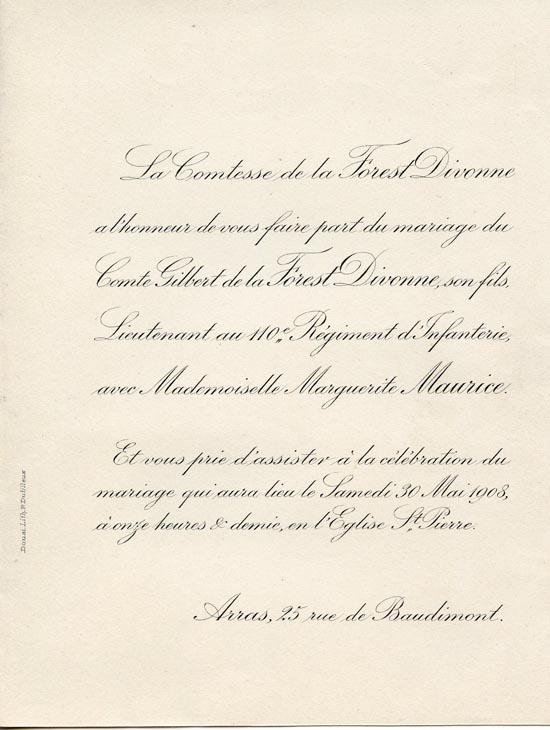 La Comtesse de la Forest Divonne
a l'honneur de vous faire part du mariage du
Comte Gilbert de la Forest Divonne, son fils,
Lieutenant au 110e Régiment d'Infanterie,
avec Mademoiselle Marguerite Maurice.
Et vous prie d'assister à la célébration du
mariage qui aura lieu le Samedi 30 Mai 1908,
à onze heures & demie, en l'Eglise St. Pierre.
Arras, 25 rue de Baudimont.
Douai. Lith. P. Dutilleux